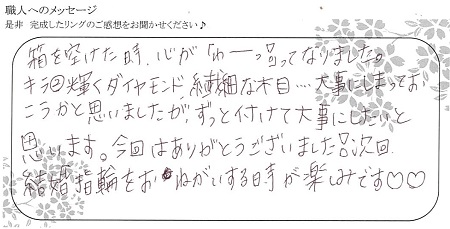 職人へのメッセージ
是非 完成したリングのご感想をお聞かせください♪
箱を空けた時、心が「わーっ」ってなりました。
キラ②輝くダイヤモンド、繊細な木目…大事にしまってお
こうかと思いましたが、ずっと付けて大事にしたいと
思います。今回はありがとうございました。次回
結婚指輪をおねがいする時が楽しみです♡♡